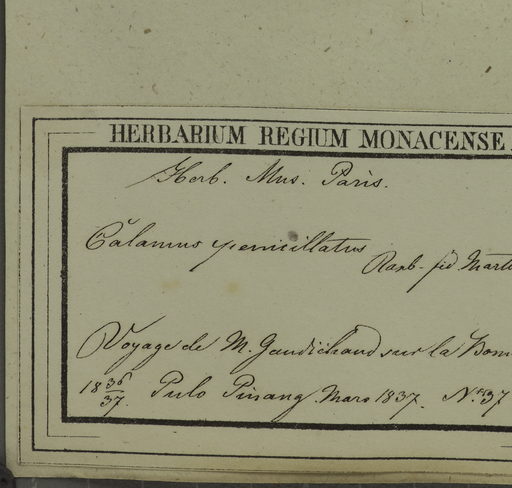 HERBARIUM REGIUM MONACENSE
Herb. Mus. Paris.
Calamus penicillatus
Roxb. fid Marti
Voyage de M. Gaudichaud sur la Boni
18 36/37. Pulo Pinang. Mars 1837. N.° 37